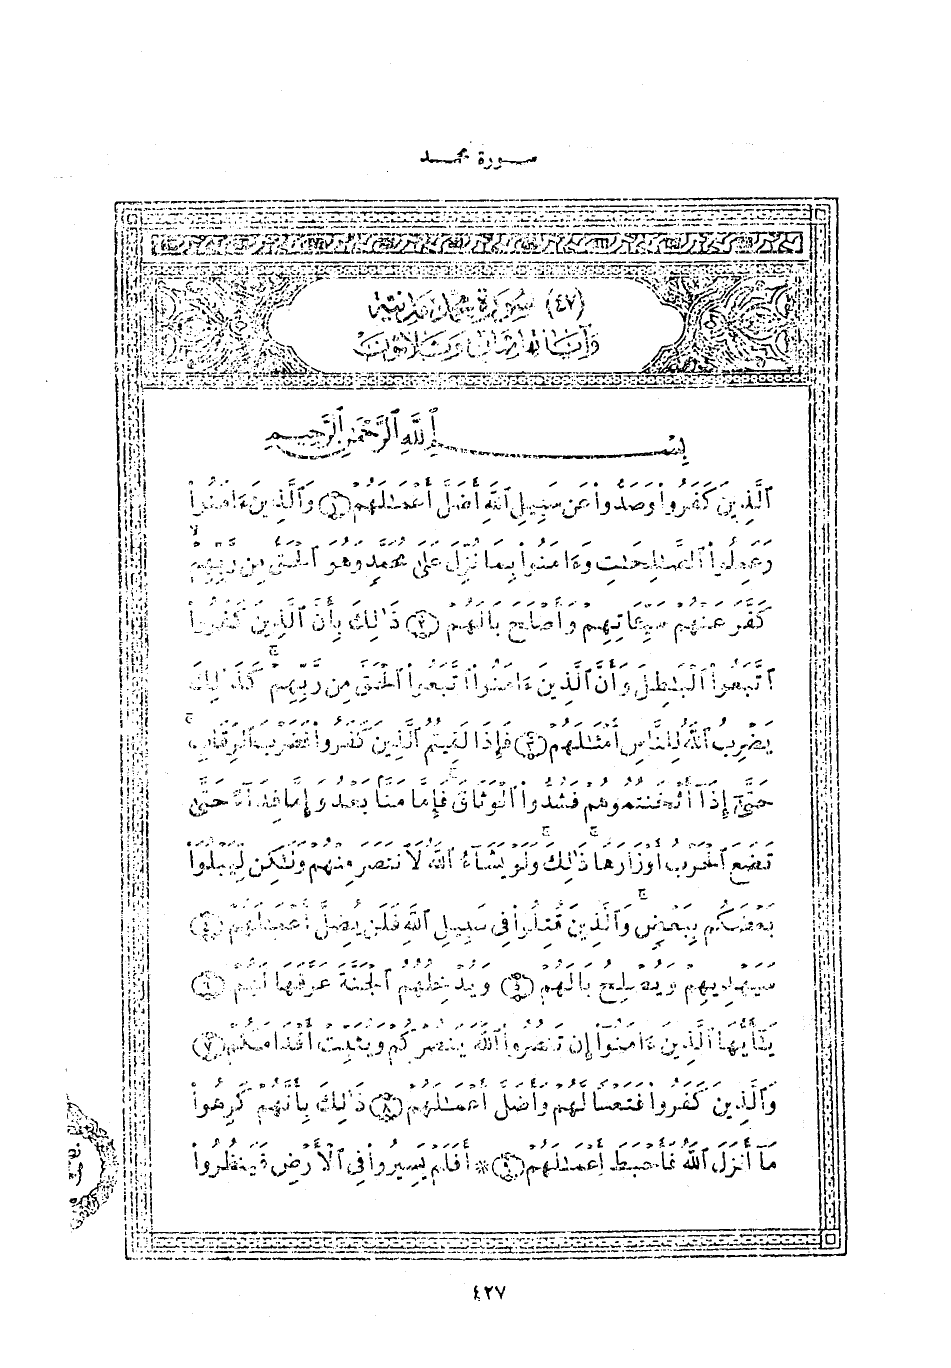 سورة محمد
(٤٧) سُورَةُ مُحَمَّدٍ مَدَنِيَّة
وَآيَاتُهَا ثَمَانٍ وَثَلَاثُونَ
بِسْمِ ٱللَّهِ ٱلرَّحْمَٰنِ ٱلرَّحِيمِ
ٱلَّذِينَ كَفَرُوا۟ وَصَدُّوا۟ عَن سَبِيلِ ٱللَّهِ أَضَلَّ أَعْمَٰلَهُمْ ١ وَٱلَّذِينَ ءَامَنُوا۟
وَعَمِلُوا۟ ٱلصَّٰلِحَٰتِ وَءَامَنُوا۟ بِمَا نُزِّلَ عَلَىٰ مُحَمَّدٍ وَهُوَ ٱلْحَقُّ مِن رَّبِّهِمْ ۙ
كَفَّرَ عَنْهُمْ سَيِّـَٔاتِهِمْ وَأَصْلَحَ بَالَهُمْ ٢ ذَٰلِكَ بِأَنَّ ٱلَّذِينَ كَفَرُوا۟
ٱتَّبَعُوا۟ ٱلْبَٰطِلَ وَأَنَّ ٱلَّذِينَ ءَامَنُوا۟ ٱتَّبَعُوا۟ ٱلْحَقَّ مِن رَّبِّهِمْ ۚ كَذَٰلِكَ
يَضْرِبُ ٱللَّهُ لِلنَّاسِ أَمْثَٰلَهُمْ ٣ فَإِذَا لَقِيتُمُ ٱلَّذِينَ كَفَرُوا۟ فَضَرْبَ ٱلرِّقَابِ ۚ
حَتَّىٰٓ إِذَآ أَثْخَنتُمُوهُمْ فَشُدُّوا۟ ٱلْوَثَاقَ ۚ فَإِمَّا مَنًّۢا بَعْدُ وَإِمَّا فِدَآءً حَتَّىٰ
تَضَعَ ٱلْحَرْبُ أَوْزَارَهَا ۚ ذَٰلِكَ ۚ وَلَوْ يَشَآءُ ٱللَّهُ لَٱنتَصَرَ مِنْهُمْ وَلَٰكِن لِّيَبْلُوَا۟
بَعْضَكُم بِبَعْضٍ ۚ وَٱلَّذِينَ قُتِلُوا۟ فِى سَبِيلِ ٱللَّهِ فَلَن يُضِلَّ أَعْمَٰلَهُمْ ٤
سَيَهْدِيهِمْ وَيُصْلِحُ بَالَهُمْ ٥ وَيُدْخِلُهُمُ ٱلْجَنَّةَ عَرَّفَهَا لَهُمْ ٦
يَٰٓأَيُّهَا ٱلَّذِينَ ءَامَنُوٓا۟ إِن تَنصُرُوا۟ ٱللَّهَ يَنصُرْكُمْ وَيُثَبِّتْ أَقْدَامَكُمْ ٧
وَٱلَّذِينَ كَفَرُوا۟ فَتَعْسًا لَّهُمْ وَأَضَلَّ أَعْمَٰلَهُمْ ٨ ذَٰلِكَ بِأَنَّهُمْ كَرِهُوا۟
مَآ أَنزَلَ ٱللَّهُ فَأَحْبَطَ أَعْمَٰلَهُمْ ٩ ۞ أَفَلَمْ يَسِيرُوا۟ فِى ٱلْأَرْضِ فَيَنظُرُوا۟
٤٢٧